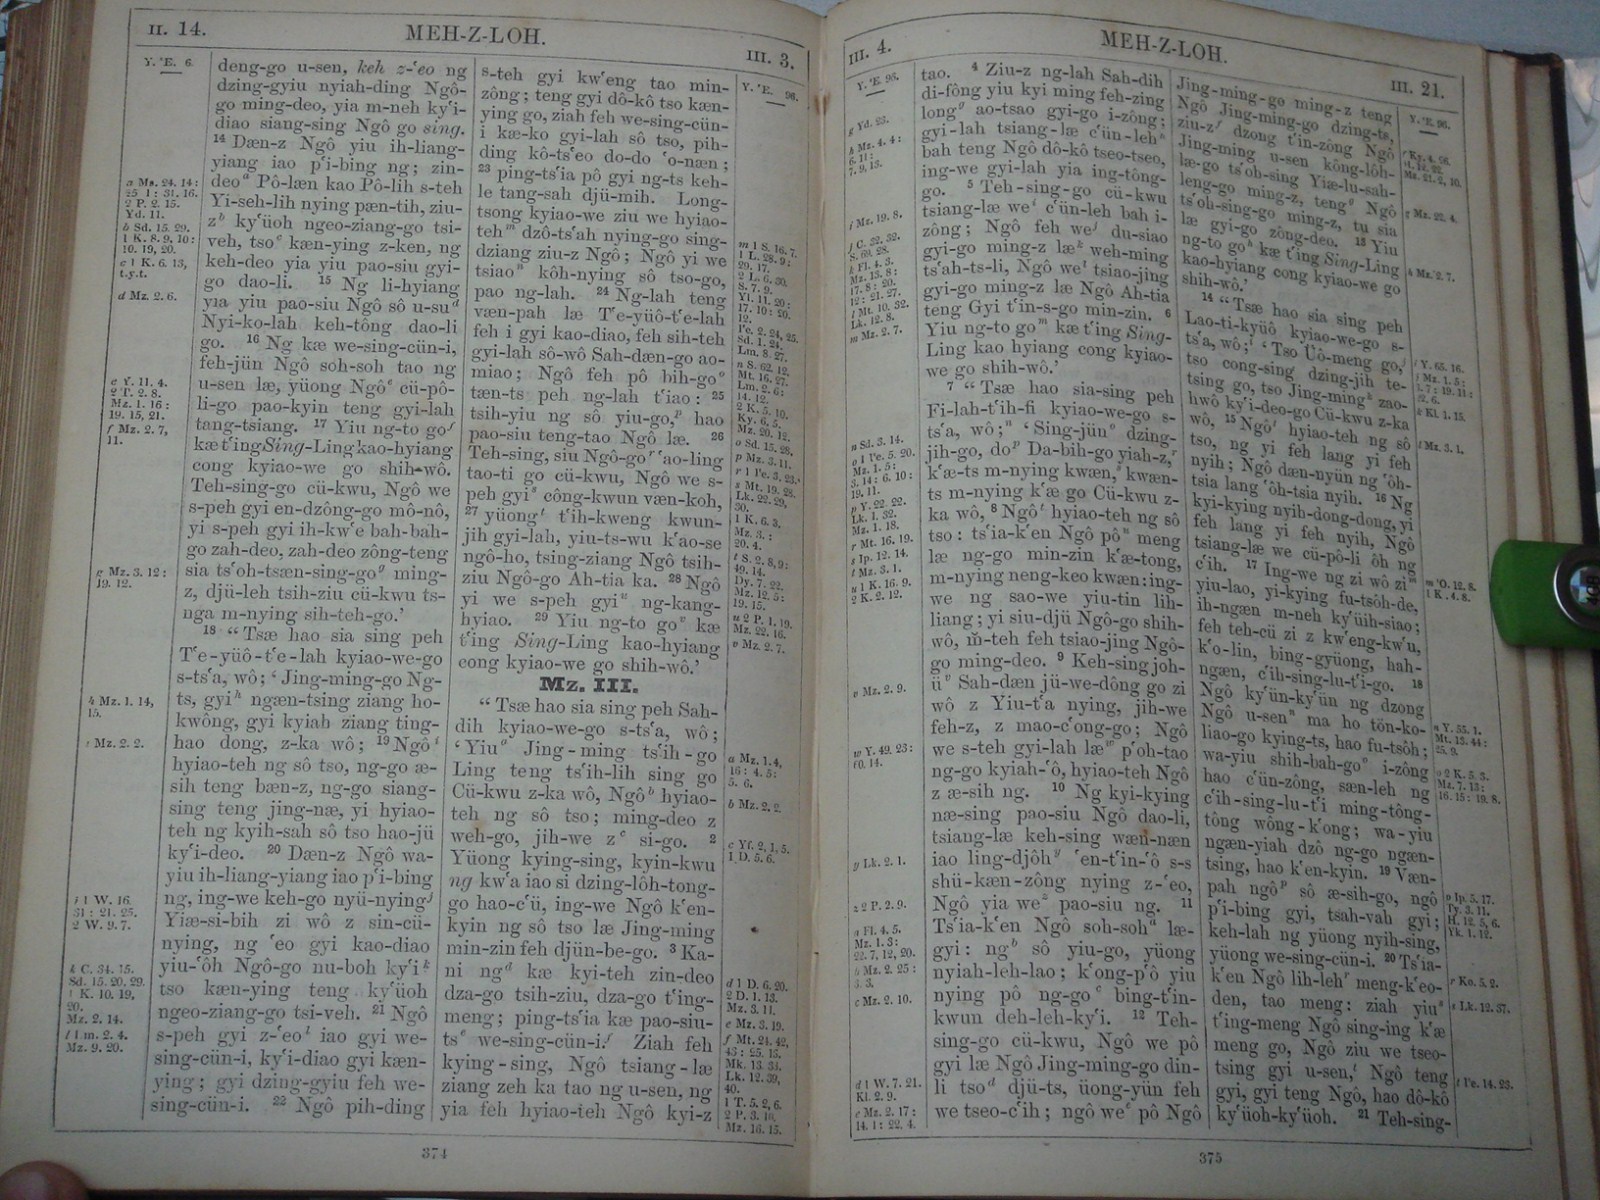 II. 14.
MEH-Z-LOH.
III. 3.
Y. 'E. 6.
deng-go u-sen, keh z-‘eo ng
dzing-gyiu nyiah-ding Ngô-
go ming-deo, yia m-neh ky‘i-
diao siang-sing Ngô go sing.
14 Dæn-z Ngô yiu ih-liang-
yiang iao p‘i-bing ng; zin-
deo a Pô-læn kao Pô-lih s-teh
Yi-seh-lih nying pæn-tih, ziu-
z b ky‘üoh ngeo-ziang-go tsi-
veh, tso c kæn-ying z-ken, ng
keh-deo yia yiu pao-siu gyi-
go dao-li. 15 Ng li-hyiang
yia yiu pao-siu Ngô sô u-su d
Nyi-ko-lah keh-tông dao-li
go. 16 Ng kæ we-sing-cün-i,
feh-jün Ngô soh-soh tao ng
u-sen læ, yüong Ngô e cü-pô-
li-go pao-kyin teng gyi-lah
tang-tsiang. 17 Yiu ng-to go f
kæ t‘ing Sing-Ling kao-hyiang
cong kyiao-we go shih-wô.
Teh-sing-go cü-kwu, Ngô we
s-peh gyi en-dzông-go mô-nô,
yi s-peh gyi ih-kw‘e bah-bah-
go zah-deo, zah-deo zông-teng
sia ts‘oh-tsæn-sing-go g ming-
z, djü-leh tsih-ziu cü-kwu ts-
nga m-nying sih-teh-go.’
18 “Tsæ hao sia sing peh
T‘e-yüô-t‘e-lah kyiao-we-go
s-ts‘a, wô; ‘Jing-ming-go Ng-
ts, gyi h ngæn-tsing ziang ho-
kwông, gyi kyiah ziang ting-
hao dong, z-ka wô; 19 Ngô i
hyiao-teh ng sô tso, ng-go æ-
sih teng bæn-z, ng-go siang-
sing teng jing-næ, yi hyiao-
teh ng kyih-sah sô tso hao-jü
ky‘i-deo. 20 Dæn-z Ngô wa-
yiu ih-liang-yiang iao p‘i-bing
ng, ing-we keh-go nyü-nying j
Yiæ-si-bih zi wô z sin-cü-
nying, ng ‘eo gyi kao-diao
yiu-‘ôh Ngô-go nu-boh ky‘i k
tso kæn-ying teng ky‘üoh
ngeo-ziang-go tsi-veh. 21 Ngô
s-peh gyi z-‘eo l iao gyi we-
sing-cün-i, ky‘i-diao gyi kæn-
ying; gyi dzing-gyiu feh we-
sing-cün-i. 22 Ngô pih-ding
a Ms. 24. 14:
25. 1: 31. 16.
2 P. 2. 15.
Yd. 11.
b Sd. 15. 29.
1 K. 8. 9, 10:
10. 19, 20.
c 1 K. 6. 13,
t.y.t.
d Mz. 2. 6.
e Y. 11. 4.
2 T. 2. 8.
Mz. 1. 16:
19. 15, 21.
f Mz. 2. 7,
11.
g Mz. 3. 12:
19. 12.
h Mz. 1. 14,
15.
i Mz. 2. 2.
j 1 W. 16.
31: 21. 25.
2 W. 9. 7.
k C. 34. 15.
Sd. 15. 20, 29.
1 K. 10. 19,
20.
Mz. 2. 14.
l Lm. 2. 4.
Mz. 9. 20.
s-teh gyi kw‘eng tao min-
zông; teng gyi dô-kô tso kæn-
ying go, ziah feh we-sing-cün-
i kæ-ko gyi-lah sô tso, pih-
ding kô-ts‘eo do-do ‘o-næn;
23 ping-ts‘ia pô gyi ng-ts keh-
le tang-sah djü-mih. Long-
tsong kyiao-we ziu we hyiao-
teh m dzô-ts‘ah nying-go sing-
dziang ziu-z Ngô; Ngô yi we
tsiao n kôh-nying sô tso-go,
pao ng-lah. 24 Ng-lah teng
væn-pah læ T‘e-yüô-t‘e-lah
feh i gyi kao-diao, feh sih-teh
gyi-lah sô-wô Sah-dæn-go ao-
miao; Ngô feh pô bih-go o
tæn-ts peh ng-lah t‘iao: 25
tsih-yiu ng sô yiu-go, p hao
pao-siu teng-tao Ngô læ. 26
Teh-sing, siu Ngô-go r ‘ao-ling
tao-ti go cü-kwu, Ngô we s-
peh gyi s công-kwun væn-koh,
27 yüong t t‘ih-kweng kwun-
jih gyi-lah, yiu-ts-wu k‘ao-se
ngô-ho, tsing-ziang Ngô tsih-
ziu Ngô-go Ah-tia ka. 28 Ngô
yi we s-peh gyi u ng-kang-
hyiao. 29 Yiu ng-to go v kæ
t‘ing Sing-Ling kao-hyiang
cong kyiao-we go shih-wô.’
Mz. III.
“Tsæ hao sia sing peh Sah-
dih kyiao-we-go s-ts‘a, wô;
‘Yiu a Jing-ming ts‘ih-go
Ling teng ts‘ih-lih sing go
Cü-kwu z-ka wô, Ngô b hyiao-
teh ng sô tso; ming-deo z
weh-go, jih-we z c si-go. 2
Yüong kying-sing, kyin-kwu
ng kw‘a iao si dzing-lôh-tong-
go hao-c‘ü, ing-we Ngô k‘en-
kyin ng sô tso læ Jing-ming
min-zin feh djün-be-go. 3 Ka-
ni ng d kæ kyi-teh zin-deo
dza-go tsih-ziu, dza-go t‘ing-
meng; ping-ts‘ia kæ pao-siu-
ts e we-sing-cün-i. f Ziah feh
kying-sing, Ngô tsiang-læ
ziang zeh ka tao ng u-sen, ng
yia feh hyiao-teh Ngô kyi-z
Y. ‘E. 96.
m 1 S. 16. 7.
1 L. 28. 9:
29. 17.
2 L. 6. 30.
S. 7. 9.
Yl. 11. 20:
17. 10: 20.
12.
l‘e. 2. 24, 25.
Sd. 1. 24.
Lm. 8. 27.
n S. 62. 12.
Mt. 16. 27.
Lm. 2. 6:
14. 12.
2 K. 5. 10.
Ky. 6. 5.
Mz. 20. 12.
o Sd. 15. 28.
p Mz. 3. 11.
r 1 l‘e. 3. 23.
s Mt. 19. 28.
Lk. 22. 29,
30.
1 K. 6. 3.
Mz. 3.:
20. 4.
t S. 2. 8, 9:
49. 14.
Dy. 7. 22.
Mz. 12. 5:
19. 15.
u 2 P. 1. 19.
Mz. 22. 16.
v Mz. 2. 7.
a Mz. 1. 4,
16: 4. 5:
5. 6.
b Mz. 2. 2.
c Yf. 2. 1, 5.
1 D. 5. 6.
d 1 D. 6. 20.
2 D. 1. 13.
Mz. 3. 11.
e Mz. 3. 19.
f Mt. 24. 42,
43: 25. 13.
Mk. 13. 33.
Lk. 12. 39,
40.
1 T. 5. 2, 6.
2 P. 3. 10.
Mz. 16. 15.
374
III. 4.
MEH-Z-LOH.
III. 21.
Y. ‘E. 96.
g Yd. 23.
h Mz. 4. 4:
6. 11:
7. 9, 13.
i Mz. 19. 8.
j C. 32. 32.
S. 69. 28.
k Fl. 4. 3.
Mz. 13. 8:
17. 8: 20.
12: 21. 27.
l Mt. 10. 32.
Lk. 12. 8.
m Mz. 2. 7.
n Sd. 3. 14.
o 1 l‘e. 5. 20.
Mz. 1. 5:
3. 14: 6. 10:
19. 11.
p Y. 22. 22.
Lk. 1. 32.
Mz. 1. 18.
r Mt. 16. 19.
s Ip. 12. 14.
t Mz. 3. 1.
u 1 K. 16. 9.
2 K. 2. 12.
v Mz. 2. 9.
w Y. 49. 23:
60. 14.
y Lk. 2. 1.
z 2 P. 2. 9.
a Fl. 4. 5.
Mz. 1. 3:
22. 7, 12, 20.
b Mz. 2. 25:
3. 3.
c Mz. 2. 10.
d 1 W. 7. 21.
Kl. 2. 9.
e Mz. 2. 17:
14. 1: 22. 4.
tao. 4 Ziu-z ng-lah Sah-dih
di-fông yiu kyi ming feh-zing
long g ao-tsao gyi-go i-zông;
gyi-lah tsiang-læ c‘ün-leh h
bah teng Ngô dô-kô tseo-tseo,
ing-we gyi-lah yia ing-tông-
go. 5 Teh-sing-go cü-kwu
tsiang-læ we i c‘ün-leh bah i-
zông; Ngô feh we j du-siao
gyi-go ming-z læ k weh-ming
ts‘ah-ts-li, Ngô we l tsiao-jing
gyi-go ming-z læ Ngô Ah-tia
teng Gyi t‘in-s-go min-zin. 6
Yiu ng-to go m kæ t‘ing Sing-
Ling kao hyiang cong kyiao-
we go shih-wô.’
7 “Tsæ hao sia-sing peh
Fi-lah-t‘ih-fi kyiao-we-go s-
ts‘a, wô; ‘Sing-jün n o dzing-
jih-go, do p Da-bih-go yiah-z, r
k‘æ-ts m-nying kwæn, s kwæn-
ts m-nying k‘æ go Cü-kwu z-
ka wô, 8 Ngô t hyiao-teh ng sô
tso: ts‘ia-k‘en Ngô pô u meng
læ ng-go min-zin k‘æ-tong,
m-nying neng-keo kwæn: ing-
we ng sao-we yiu-tin lih-
liang; yi siu-djü Ngô-go shih-
wô, m-teh feh tsiao-jing Ngô-
go ming-deo. 9 Keh-sing joh-
ü v Sah-dæn jü-we-dông go zi
wô z Yiu-t‘a nying, jih-we
feh-z, z mao-c‘ong-go; Ngô
we s-teh gyi-lah læ w p‘oh-tao
ng-go kyiah-‘ô, hyiao-teh Ngô
z æ-sih ng. 10 Ng kyi-kying
næ-sing pao-siu Ngô dao-li,
tsiang-læ keh-sing wæn-næn
iao ling-djôh y ‘en-t‘in-‘ô s-s
shü-kæn-zông nying z-‘eo,
Ngô yia we z pao-siu ng. 11
Ts‘ia-k‘en Ngô soh-soh a læ-
gyi: ng b sô yiu-go, yüong
nyiah-leh-lao; k‘ong-p‘ô yiu
nying pô ng-go c bing-t‘in-
kwun deh-leh-ky‘i. 12 Teh-
sing-go cü-kwu, Ngô we pô
gyi læ Ngô Jing-ming-go din-
li tso d djü-ts, üong-yün feh
we tseo-c‘ih; ngô we e pô Ngô
Jing-ming-go ming-z teng
Ngô Jing-ming-go dzing-ts,
ziu-z f dzong t‘in-zông Ngô
Jing-ming u-sen kông-lôh-
læ-go ts‘oh-sing Yiæ-lu-sah-
leng-go ming-z, teng g Ngô
ts‘oh-sing-go ming-z, tu sia
læ gyi-go zông-deo. 13 Yiu
ng-to go h kæ t‘ing Sing-Ling
kao-hyiang cong kyiao-we go
shih-wô.’
14 “Tsæ hao sia sing peh
Lao-ti-kyüô kyiao-we-go s-
ts‘a, wô; i ‘Tso Üô-meng go, j
tso cong-sing dzing-jih te-
tsing go, tso Jing-ming k zao-
hwô ky‘i-deo-go Cü-kwu z-ka
wô, 15 Ngô l hyiao-teh ng sô
tso, ng yi feh lang yi feh
nyih; Ngô dæn-nyün ng ‘ôh-
tsia lang ‘ôh-tsia nyih. 16 Ng
kyi-kying nyih-dong-dong, yi
feh lang yi feh nyih, Ngô
tsiang-læ we cü-pô-li ôh ng
c‘ih. 17 Ing-we ng zi wô zi m
yiu-lao, yi-kying fu-tsôh-de,
ih-ngæn m-neh ky‘üih-siao;
feh teh-cü zi z kw‘eng-kw‘u,
k‘o-lin, bing-gyüong, hah-
ngæn, c‘ih-sing-lu-t‘i-go. 18
Ngô ky‘ün-ky‘ün ng dzong
Ngô u-sen n ma ho tön-ko-
liao-go kying-ts, hao fu-tsôh;
wa-yiu shih-bah-go o i-zông
hao c‘ün-zông, sæn-leh ng
c‘ih-sing-lu-t‘i ming-tông-
tông wông-k‘ong; wa-yiu
ngæn-yiah dzô ng-go ngæn-
tsing, hao k‘en-kyin. 19 Væn-
pah ngô p sô æ-sih-go, ngô
p‘i-bing gyi, tsah-vah gyi;
keh-lah ng yüong nyih-sing,
yüong we-sing-cün-i. 20 Ts‘ia-
k‘en Ngô lih-leh r meng-k‘eo-
den, tao meng: ziah yiu s
t‘ing-meng Ngô sing-ing k‘æ
meng go, Ngô ziu we tseo-
tsing gyi u-sen, t Ngô teng
gyi, gyi teng Ngô, hao dô-kô
ky‘üoh-ky‘üoh. 21 Teh-sing-
Y. ‘E. 96.
g Mz. 22. 4.
h Mz. 2. 7.
i Y. 65. 16.
j Mz. 1. 5:
3. 7: 19. 11:
22. 6.
k Kl. 1. 15.
l Mz. 3. 1.
m ‘O. 12. 8.
1 K. 4. 8.
n Y. 55. 1.
Mt. 13. 44:
25. 9.
o 2 K. 5. 3.
Mz. 7. 13:
16. 15: 19. 8.
p Ip. 5. 17.
Ty. 3. 11.
H. 12. 5, 6.
Yk. 1. 12.
r Ko. 5. 2.
s Lk. 12. 37.
t l‘e. 14. 23.
375